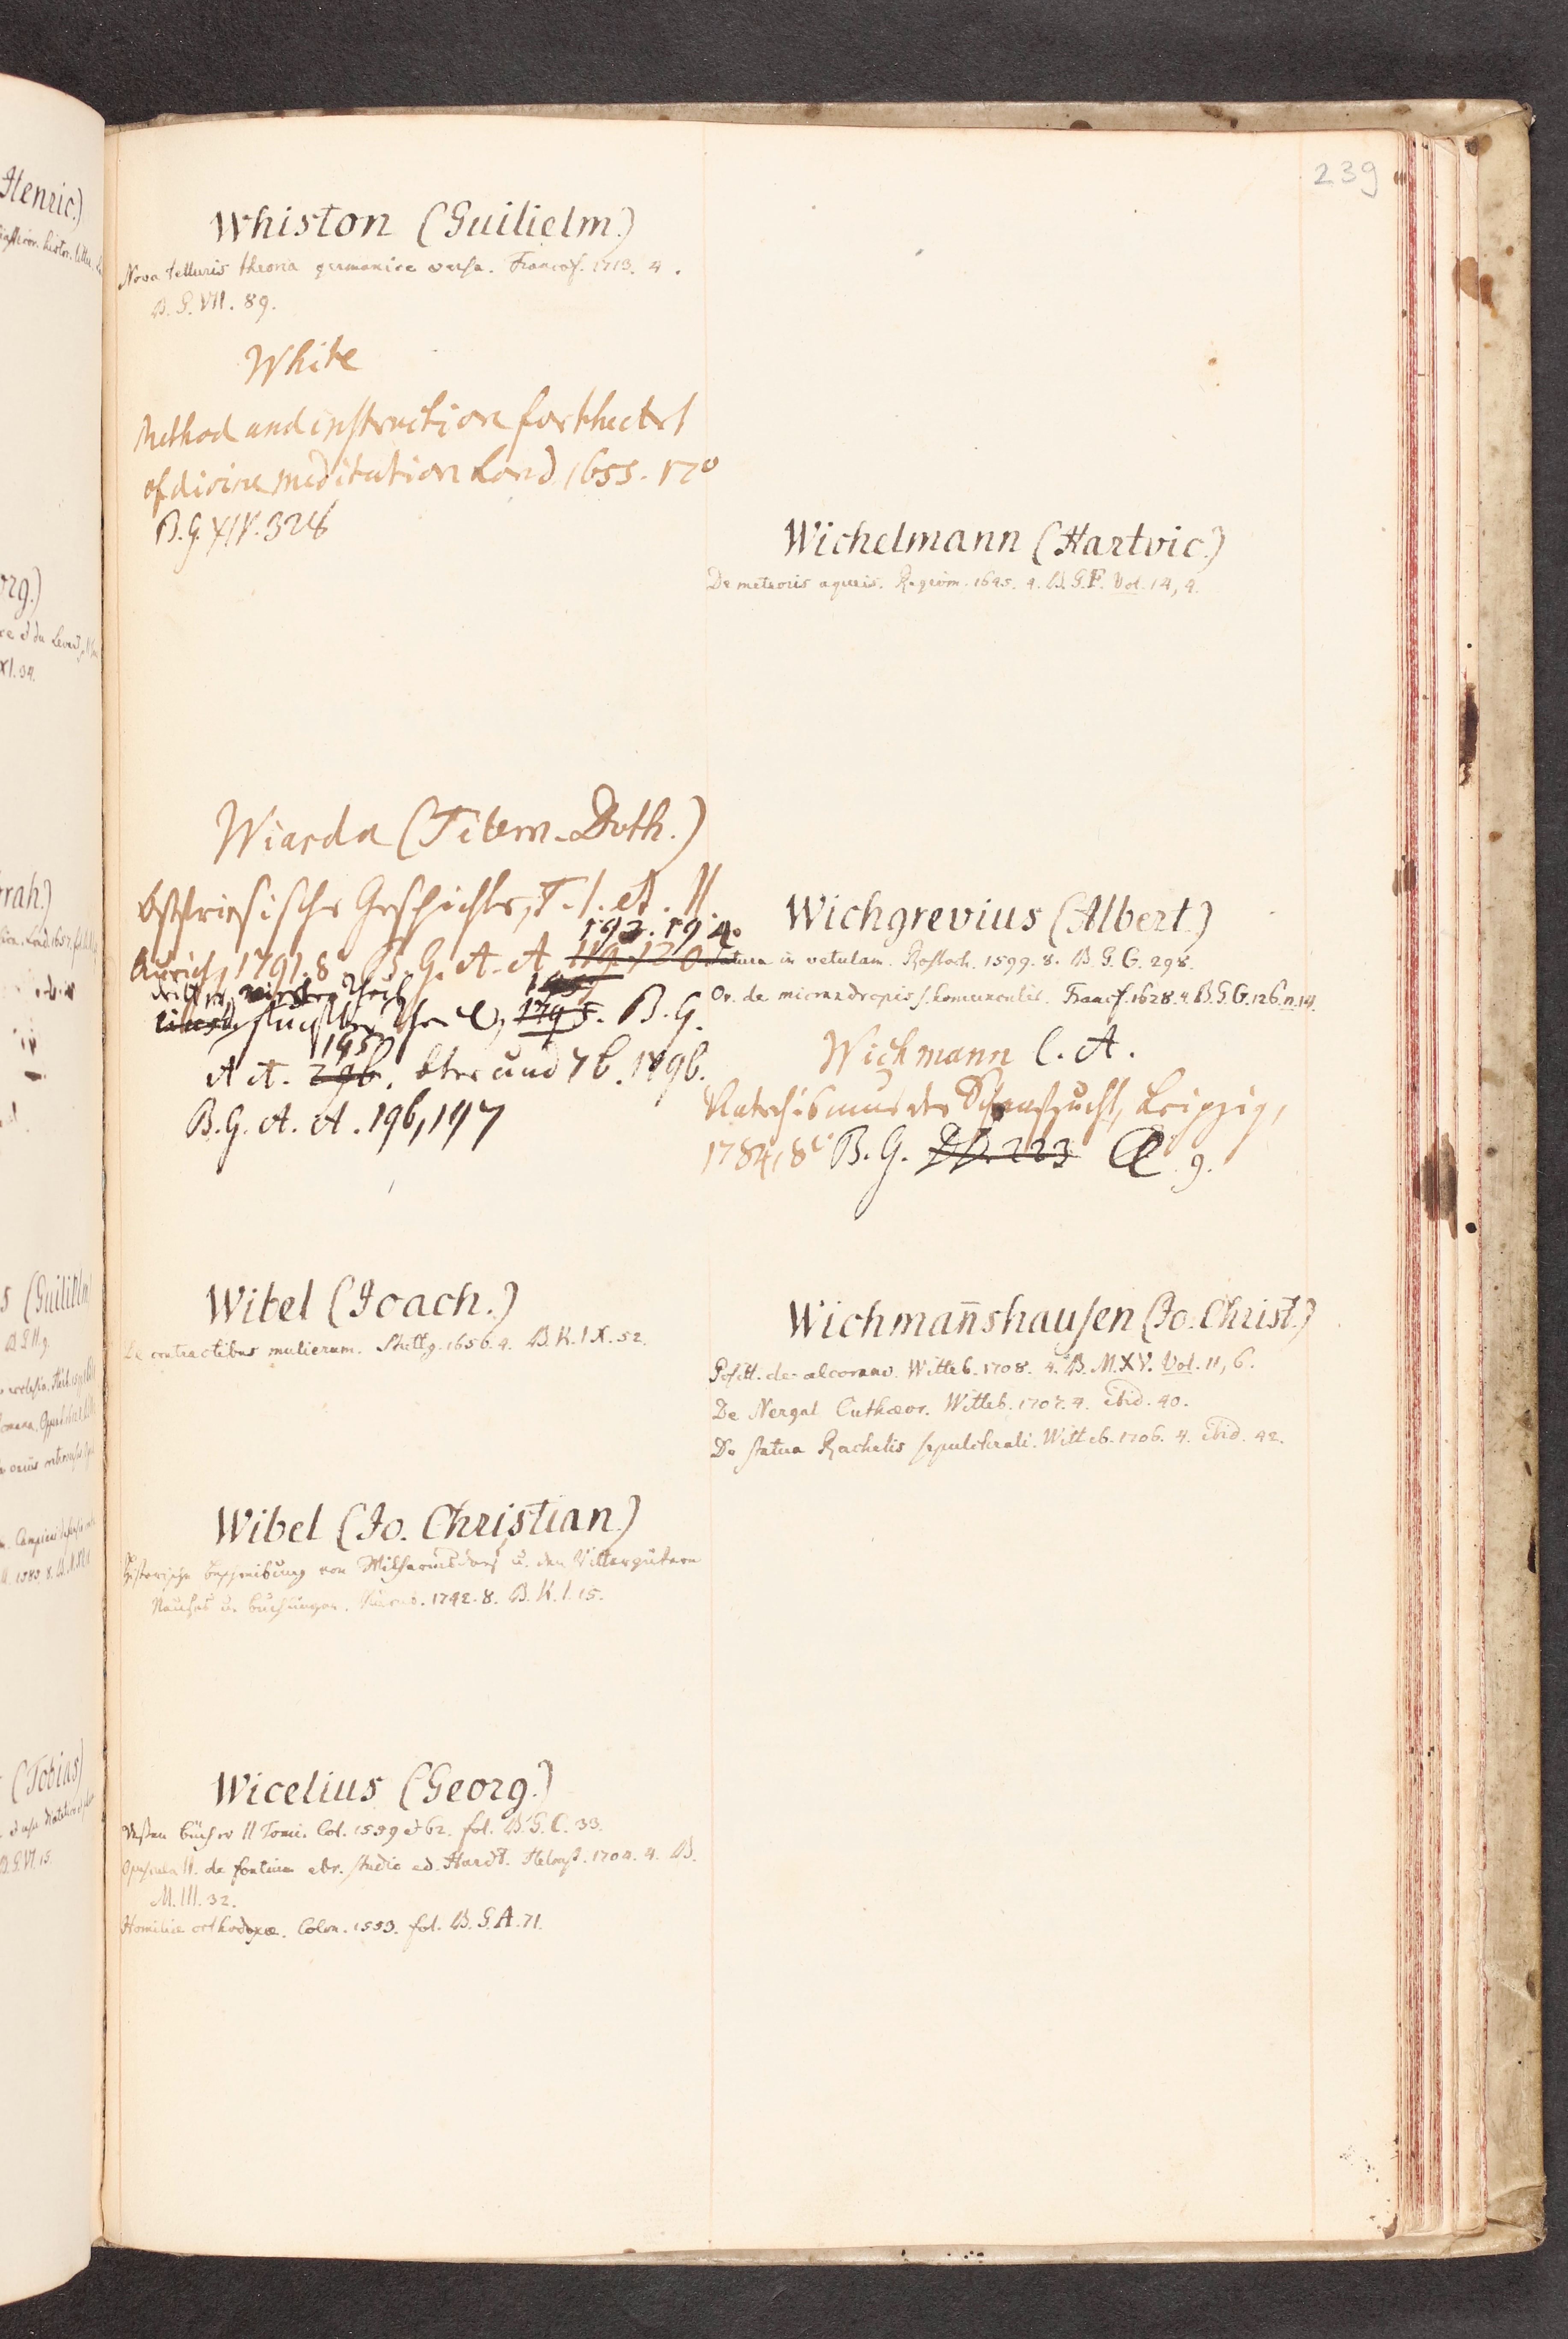 239
Whiston (Guilielm.)
Nova telluris theoria germanice versa. Francof. 1713. 4.
B. G. VII. 89.
White
Method and instruction for the art
of divine meditation Lond. 1655. 12°
B. G. XIV. 328
Wiarda (Tilem. Doth.)
Ostfriesische Geschichte, T. I. et. II
193. 194.
Aurich, 1791. 8 B. G. A. A. 119. 120
dritter, vierter Theil
fünfter Theil, 1795. B. G.
195
A A. 296. 6ter und 7 b. 1796.
B. G. A. A. 196, 197
Wibel (Joach.)
De contractibus mulierum. Stuttg. 1656. 4. B. K. IX. 52.
Wibel (Jo. Christian)
Historische Beschreibung von Wilhermsdorf u. den Rittergütern
Neuhof u. Buchlingen. Nürnb. 1742. 8. B. K. I. 15.
Wicelius (Georg.)
II Tomi. Col. 1559 et 62. fol. B. G. C. 33.
Opuscula II. de fontium ebr. studio ed. Hardt. Helmst. 1704. 4. B.
M. III. 32.
Homiliæ orthodoxæ. Colon. 1553. fol. B. G. A. 71.
Wichelmann (Hartvic.)
De meteoris aqueis. Regiom. 1645. 4. B. G. F. Vol. 14, 4.
Wichgrevius (Albert.)
Satura in vetulam. Rostoch. 1599. 8. B. G. G. 298.
Or. de micrandropis s. homuncul. Francf. 1628. 4. B. G. G. 126. n. 14.
Wichmann C. A.
Katechismus der Schafzucht, Leipzig,
1784, 8 B. G. 223 9.
Wichmañshausen (Jo. Christ.)
Positt. de alcorano. Witteb. 1708. 4. B. M. XV. Vol. 11, 6.
De Nergal Cuthæor. Witteb. 1707. 4. ibid. 40.
De statua Rachelis sepulchrali. Witteb. 1706. 4. ibid. 42.